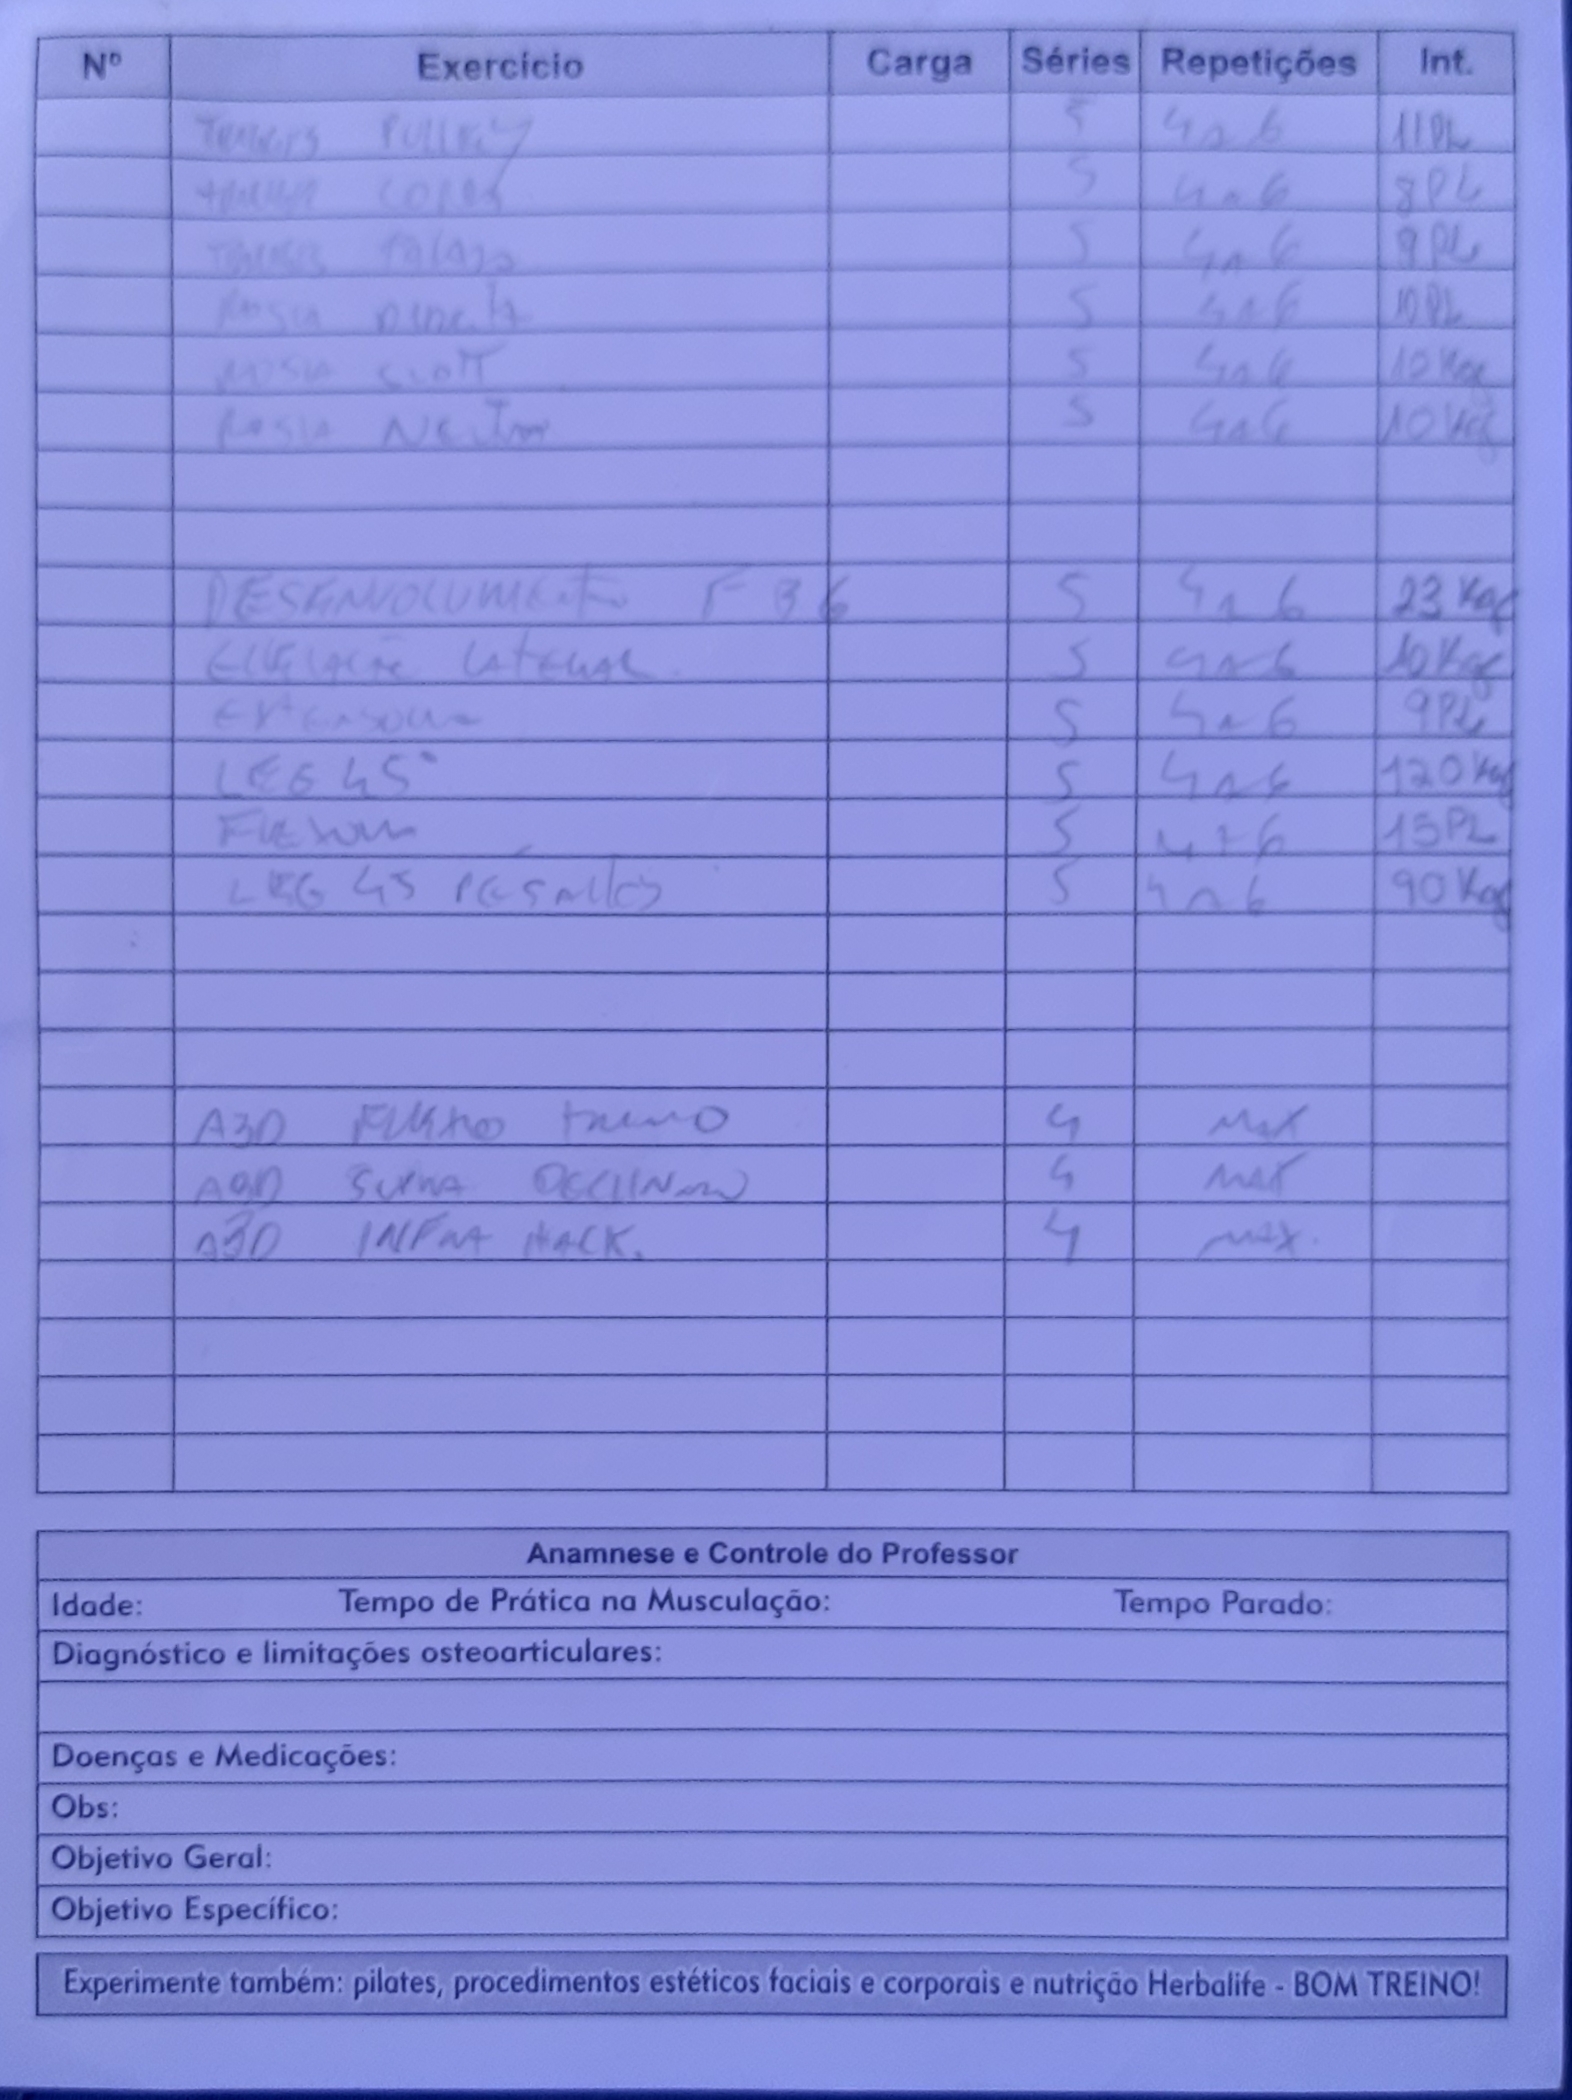 Nº Exercício Carga Séries Repetições Int.
PULLEY 5 4 a 6 11 PL
CORDA 5 4 a 6 8 PL
5 4 a 6 9 PL
ROSCA DIRETA 5 4 a 6 10 PL
ROSCA SCOTT 5 4 a 6 10 Kg
ROSCA NEUTRA 5 4 a 6 10 Kg
DESENVOLVIMENTO 5 4 a 6 23 Kg
ELEVAÇÃO LATERAL 5 4 a 6 10 Kg
EXTENSORA 5 4 a 6 9 PL
LEG 45° 5 4 a 6 120 Kg
FLEXORA 5 4 a 6 15 PL
LEG 45 PÉS ALTOS 5 4 a 6 90 Kg
4 MAX
SUPRA DECLINADO 4 MAX
INFRA HACK. 4 MAX.
Anamnese e Controle do Professor
Idade: Tempo de Prática na Musculação: Tempo Parado:
Diagnóstico e limitações osteoarticulares:
Doenças e Medicações:
Obs:
Objetivo Geral:
Objetivo Específico:
Experimente também: pilates, procedimentos estéticos faciais e corporais e nutrição Herbalife - BOM TREINO!